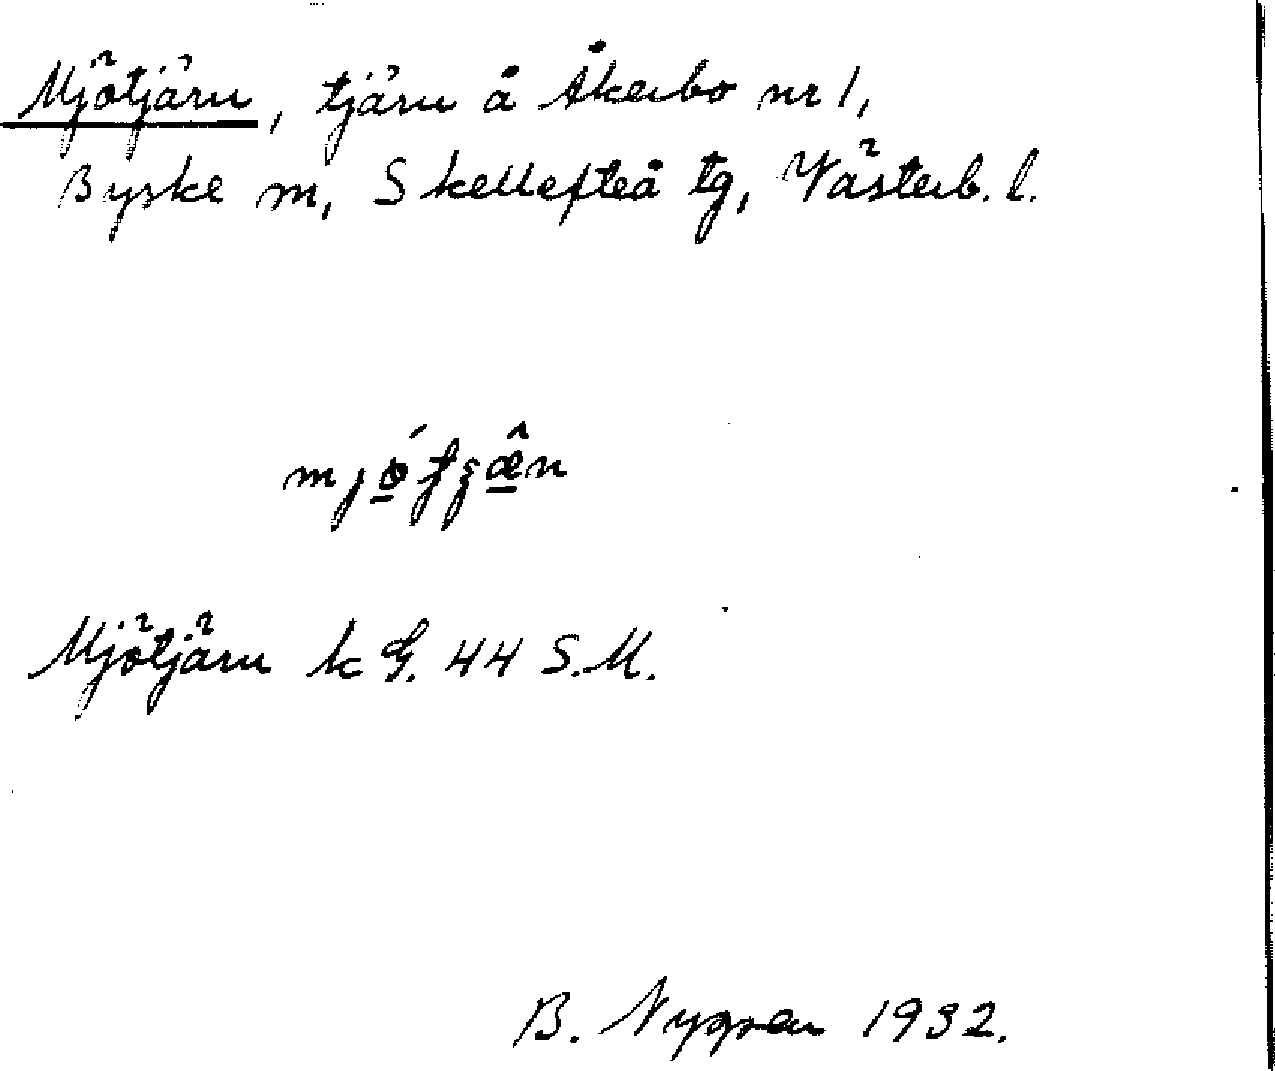 Mjötjärn, tjärn å Åkerbo nr 1,
Byske m, Skellefteå tg, Västerb. l.
Mjötjärn k G. 44 S.M.
B. Nygren 1932.